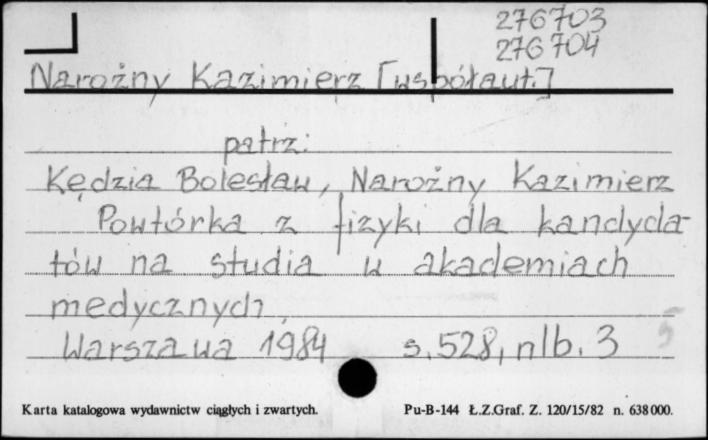 276703
276704
Narożny Kazimierz [współaut.]
patrz:
Kędzia Bolesław, Narożny Kazimierz
Powtórka z fizyki dla kandyda-
tów na studia w akademiach
medycznych.
Warszawa 1984 s. 528, nlb. 3
5
Karta katalogowa wydawnictw ciągłych i zwartych. Pu-B-144 Ł.Z.Graf. Z. 120/15/82 n. 638000.